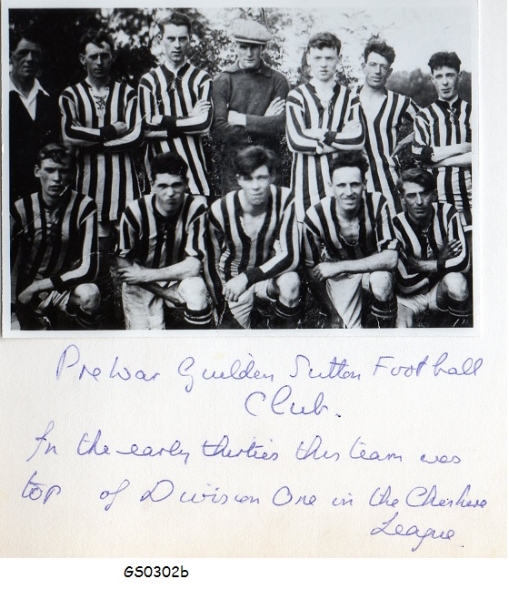 Pre War Guilden Sutton Football
Club.
In the early thirties this team was
top of Division One in the Cheshire
League.
GS0302b